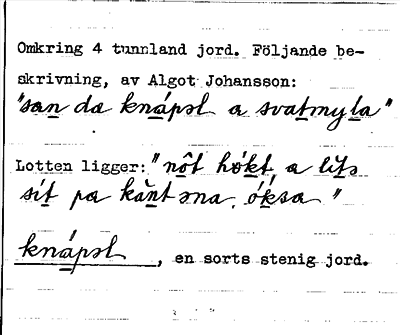 Omkring 4 tunnland jord. Följande be-
skrivning, av Algot Johansson:
"san da knápəl a svatmyla"
Lotten ligger: "nôt hókt, a lits
sít pa kant əna óksa"
knápəl, en sorts stenig jord.